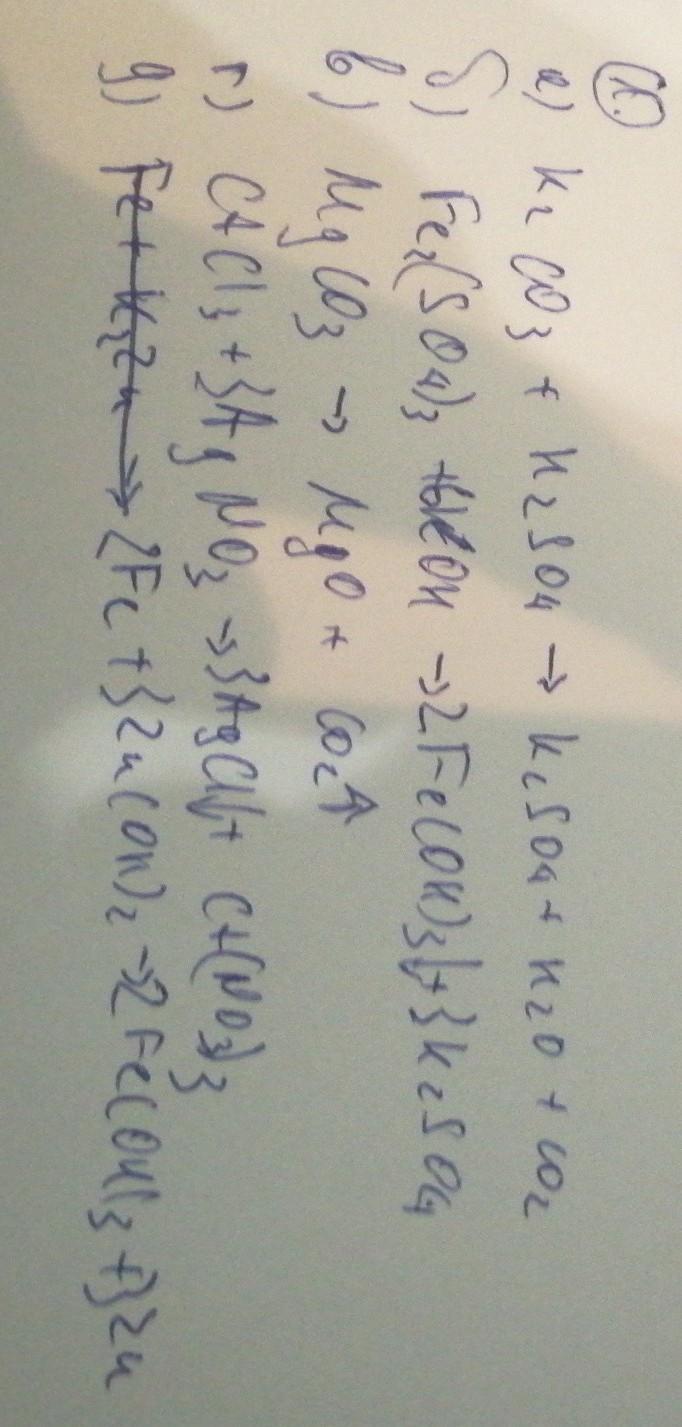 (1.)
а) K₂CO₃ + H₂SO₄ → K₂SO₄ + H₂O + CO₂
б) Fe₂(SO₄)₃ + 6KOH → 2Fe(OH)₃↓ + 3K₂SO₄
в) MgCO₃ → MgO + CO₂↑
г) CrCl₃ + 3AgNO₃ → 3AgCl↓ + Cr(NO₃)₃
д) 2Fe + 3Zn(OH)₂ → 2Fe(OH)₃ + 3Zn